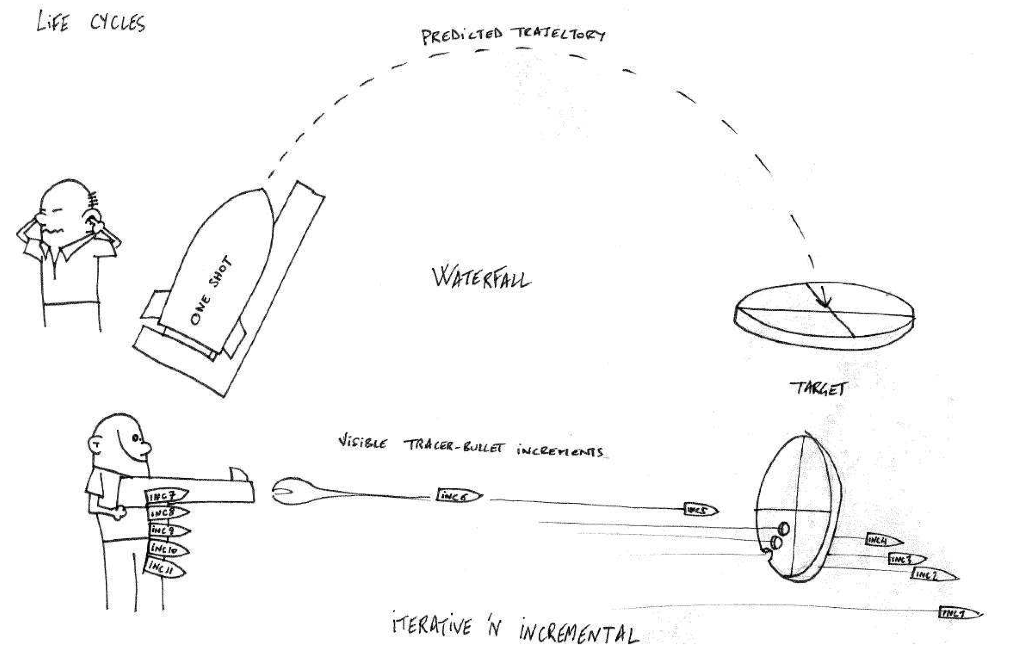 LiFE CYCLES
PREDICTED TRAJECTORY
ONE SHOT
WATERFALL
TARGET
VISIBLE TRACER-BULLET INCREMENTS
INC7
INC8
INC9
INC10
INC11
INC6
INC5
INC4
INC3
INC2
INC1
ITERATIVE 'N INCREMENTAL